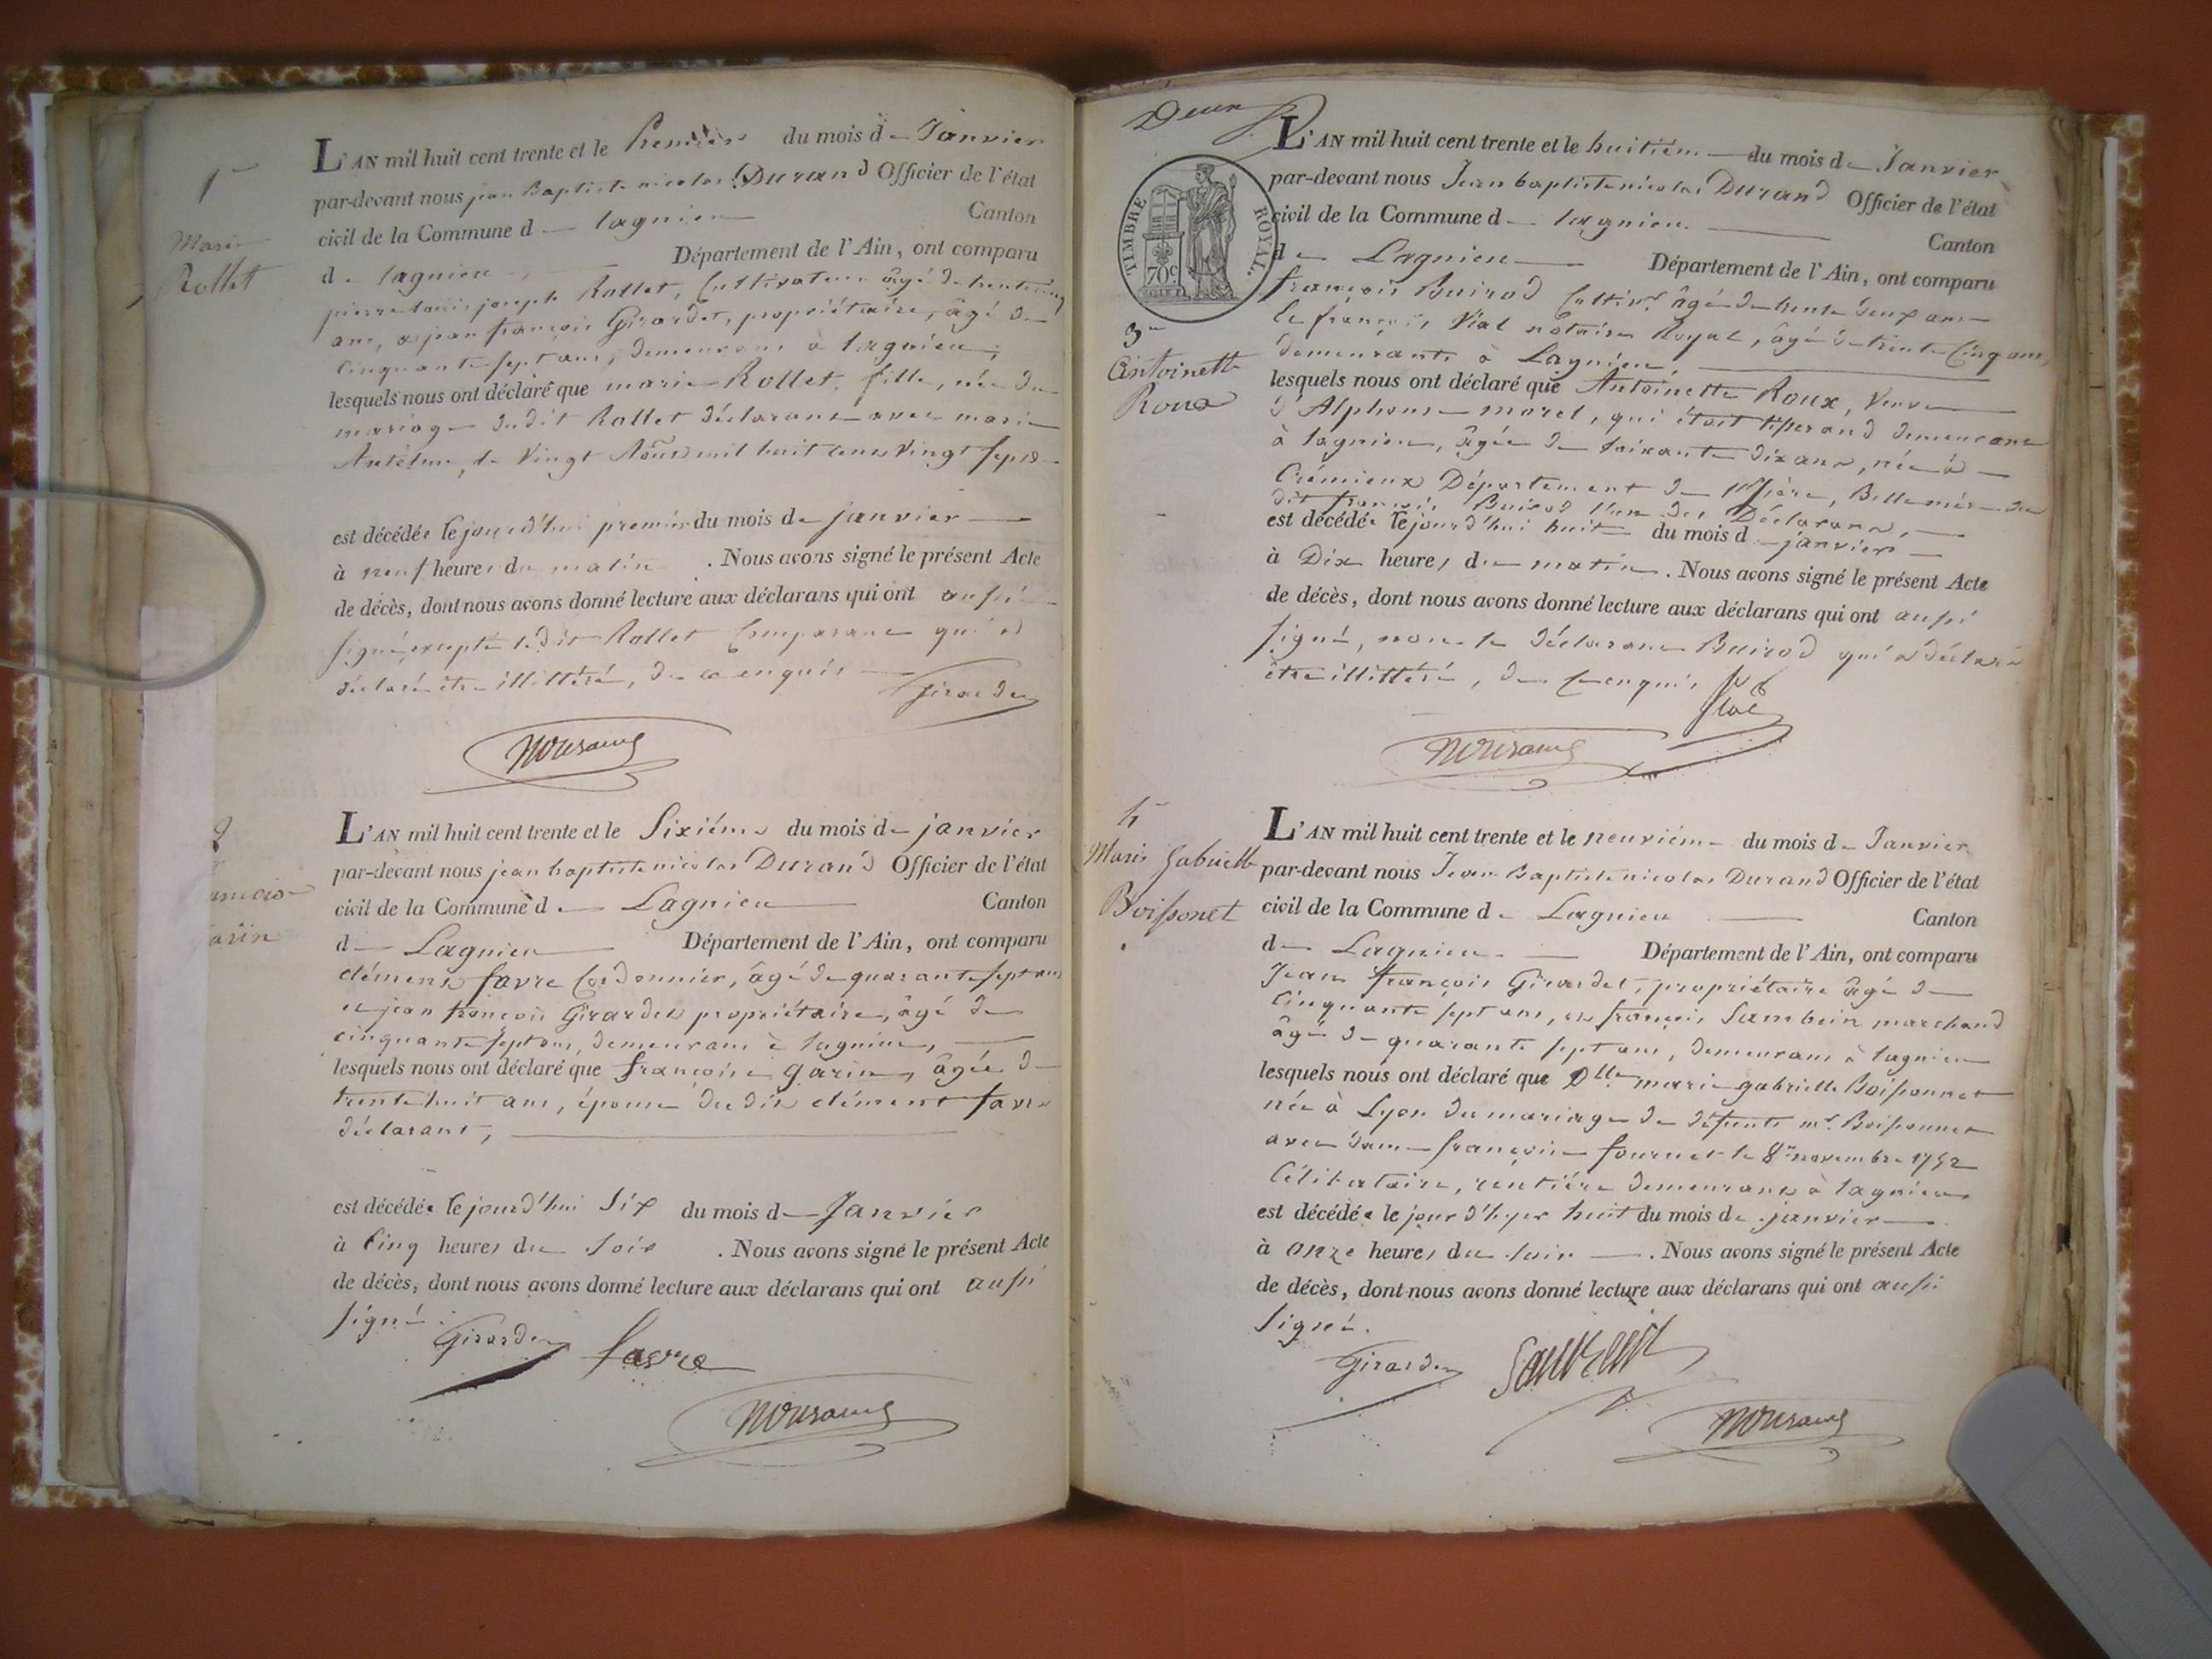 1er
Marie
Rollet
L'AN mil huit cent trente et le Premier du mois de Janvier
par-devant nous jean Baptiste nicolas Durand Officier de l'état
civil de la Commune d lagnieu Canton
de lagnieu Département de l'Ain, ont comparu
pierre louis joseph Rollet, Cultivateur âgé de trente cinq
ans, et jean françois Girardet, propriétaire, âgé de
Cinquante sept ans, demeurans à lagnieu,
lesquels nous ont déclaré que marie Rollet, fille, née du
mariage dudit Rollet déclarant avec marie
Antelme, le Vingt Aout mil huit cent Vingt sept
est décédée le jourd'hui premier du mois de janvier
à neuf heures du matin . Nous avons signé le présent Acte
de décès, dont nous avons donné lecture aux déclarans qui ont aussi
signé excepté ledit Rollet Comparant qui a
déclaré être illittéré, de ce enquis Girardet
Durand
2
ançoise
arin
L'AN mil huit cent trente et le Sixième du mois de janvier
par-devant nous jean baptiste nicolas Durand Officier de l'état
civil de la Commune d Lagnieu Canton
d Lagnieu Département de l'Ain, ont comparu
clément favre Cordonnier, âgé de quarante sept ans
et jean françois Girardet propriétaire, âgé de
cinquante sept ans, demeurans à lagnieu,
lesquels nous ont déclaré que françoise garin, âgée de
trente huit ans, épouse dudit clément favre
déclarant,
est décédée le jourd'hui Six du mois de Janvier
à Cinq heures du soir . Nous avons signé le présent Acte
de décès, dont nous avons donné lecture aux déclarans qui ont aussi
signé.
Girardet favre
Durand
Deux
TIMBRE ROYAL.
70c
3e
Antoinette
Roux
L'AN mil huit cent trente et le huitième du mois de Janvier
par-devant nous Jean baptiste nicolas Durand Officier de l'état
civil de la Commune d lagnieu Canton
de Lagnieu Département de l'Ain, ont comparu
françois Buirod Cultivr âgé de trente deux ans
et françois Vial notaire Royal, âgé de trente Cinq ans,
demeurants à Lagnieu,
lesquels nous ont déclaré que Antoinette Roux, Veuve
d'Alphonse morel, qui était tisserand demeurant
à lagnieu, âgée de soixante dix ans, née à
Crémieux Département de l'Isère, Belle mère du
dit françois Buirod l'un des Déclarans,
est décédée le jourd'hui huit du mois d janvier
à Dix heures du matin . Nous avons signé le présent Acte
de décès, dont nous avons donné lecture aux déclarans qui ont aussi
signé, non le déclarant Buirod qui a déclaré
être illittéré, de ce enquis
Vial
Durand
4e
Marie Gabrielle
Boissonet
L'AN mil huit cent trente et le neuvième du mois de Janvier
par-devant nous Jean Baptiste nicolas Durand Officier de l'état
civil de la Commune de Lagnieu Canton
de Lagnieu Département de l'Ain, ont comparu
Jean françois Girardet, propriétaire âgé de
Cinquante sept ans, et françois Sambein marchand
âgé de quarante sept ans, demeurans à lagnieu
lesquels nous ont déclaré que Dlle marie gabrielle Boissonnet
née à Lyon du mariage de défunts mr. Boissonnet
avec dame françoise fournet le 8 novembre 1752
Célibataire, rentière demeurant à lagnieu
est décédée le jour d'hyer huit du mois de janvier
à onze heures du soir . Nous avons signé le présent Acte
de décès, dont nous avons donné lecture aux déclarans qui ont aussi
signé.
Girardet
Durand